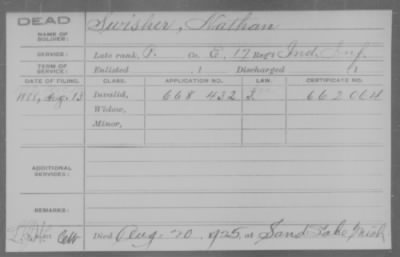 DEAD
NAME OF SOLDIER: Swisher, Nathan
SERVICE: Late rank, P. Co. E, 17 Reg't Ind. Inf
TERM OF SERVICE: Enlisted , 1 Discharged , 1
DATE OF FILING. CLASS. APPLICATION NO. LAW. CERTIFICATE NO.
Aug. 13 Invalid, 668 432 662 064
Widow,
Minor,
ADDITIONAL SERVICES:
REMARKS:
Died Aug. 20, 1925, at Sand Lake, Mich,